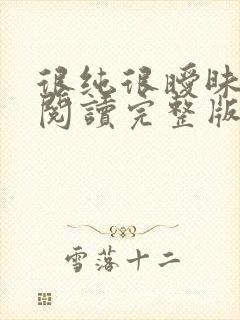 很纯很曖昧
閱讀完整版
雪落十二